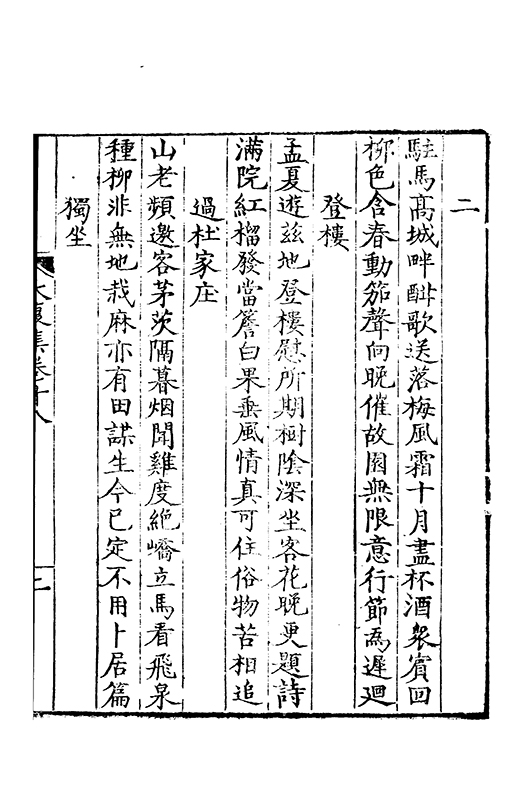 二
駐馬髙城畔酣歌送落梅風霜十月盡杯酒衆賓回
栁色含春動笳聲向晚催故園無限意行節爲遲廻
登樓
孟夏遊兹地登樓慰所期樹陰深坐客花晚更題詩
滿院紅榴發當簷白果垂風情真可住俗物苦相追
過杜家庄
山老頻邀客茅茨隔暮烟聞雞度絶嶠立馬看飛泉
種栁非無地栽麻亦有田謀生今已定不用卜居篇
獨坐
集卷十八
二